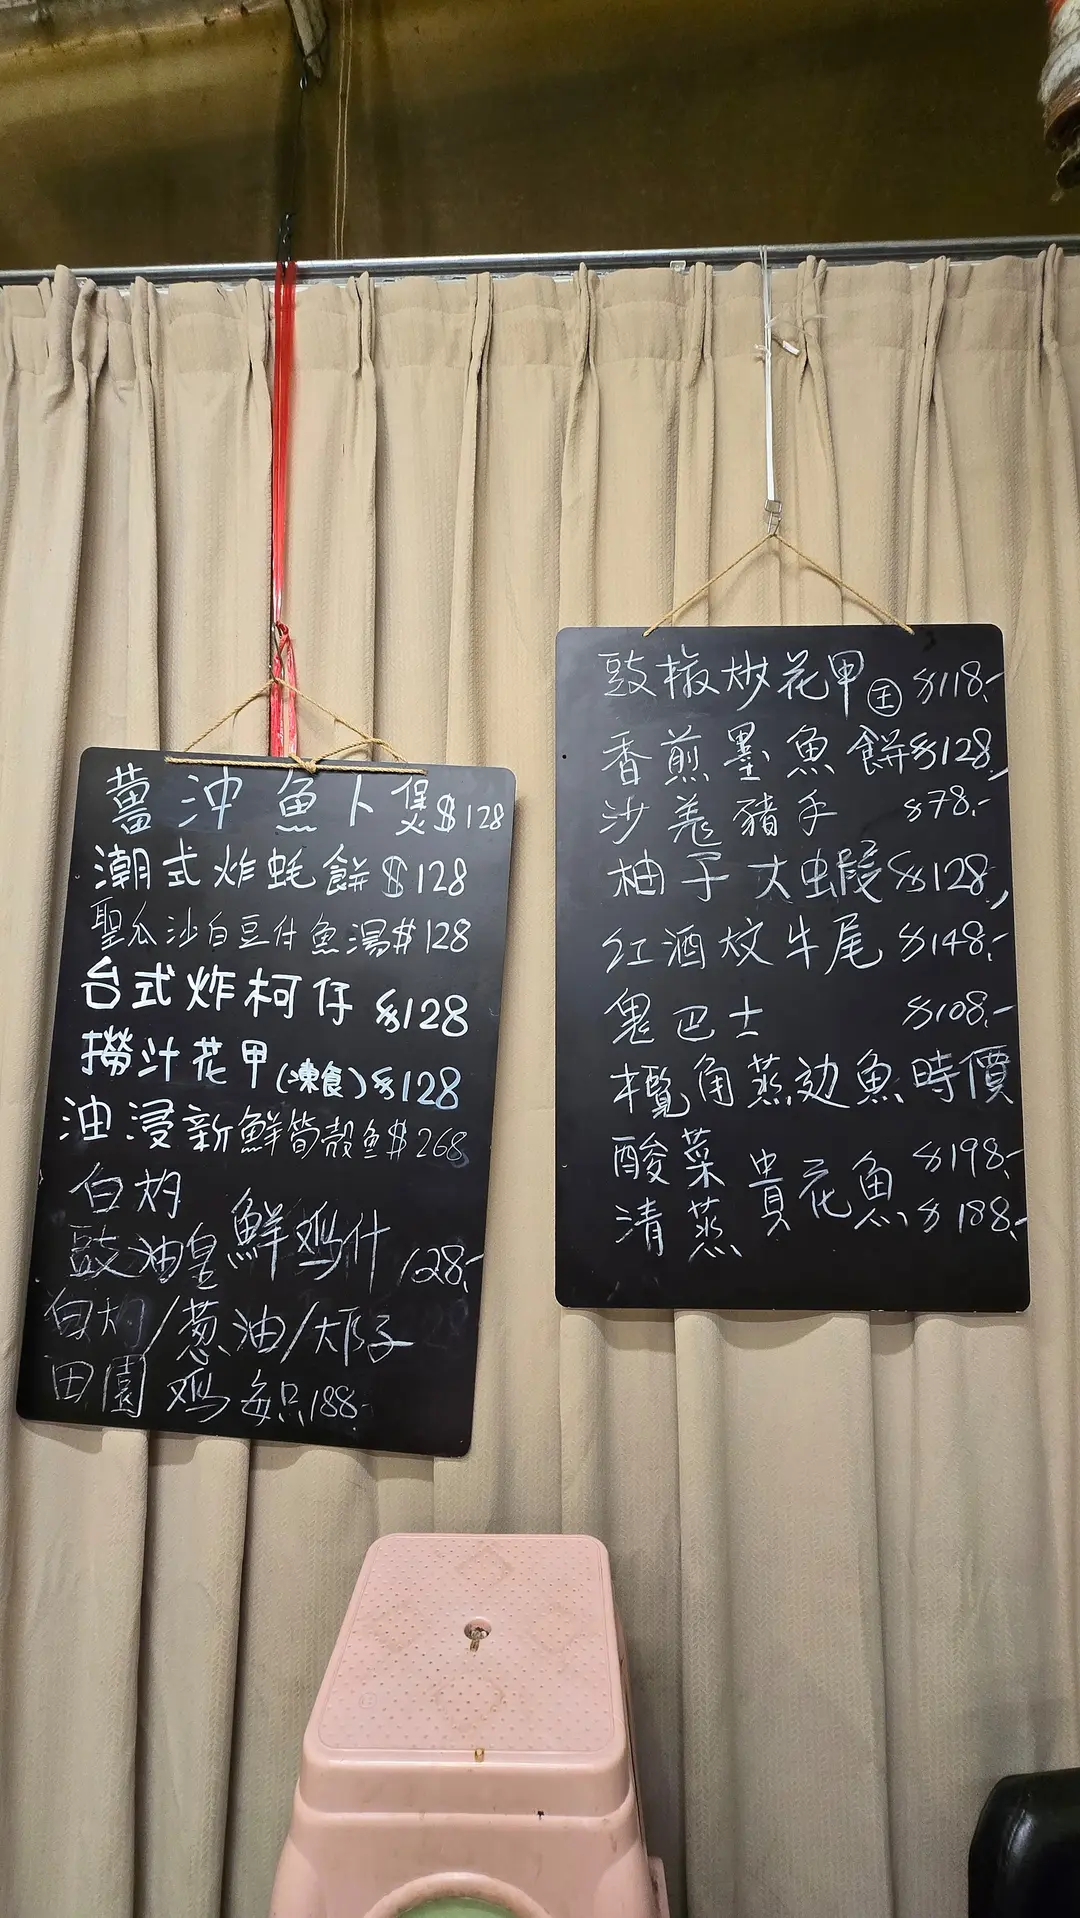 薑沖魚卜煲$128
潮式炸蚝餅$128
聖瓜沙白豆仔魚湯$128
台式炸柯仔 $128
撈汁花甲(凍食)$128
油浸新鮮筍殼魚$268
白灼
豉油皇鮮鸡什128.-
白灼/葱油/大郎子
田園鸡每只188-
豉椒炒花甲王 $118.-
香煎墨魚餅$128.
沙羗豬手 $78.-
柚子大虫蝦$128.
红酒炆牛尾$148.-
鬼巴士 $108.-
欖角蒸边魚時價
酸菜 $198.-
貴花魚
清蒸 $188.-